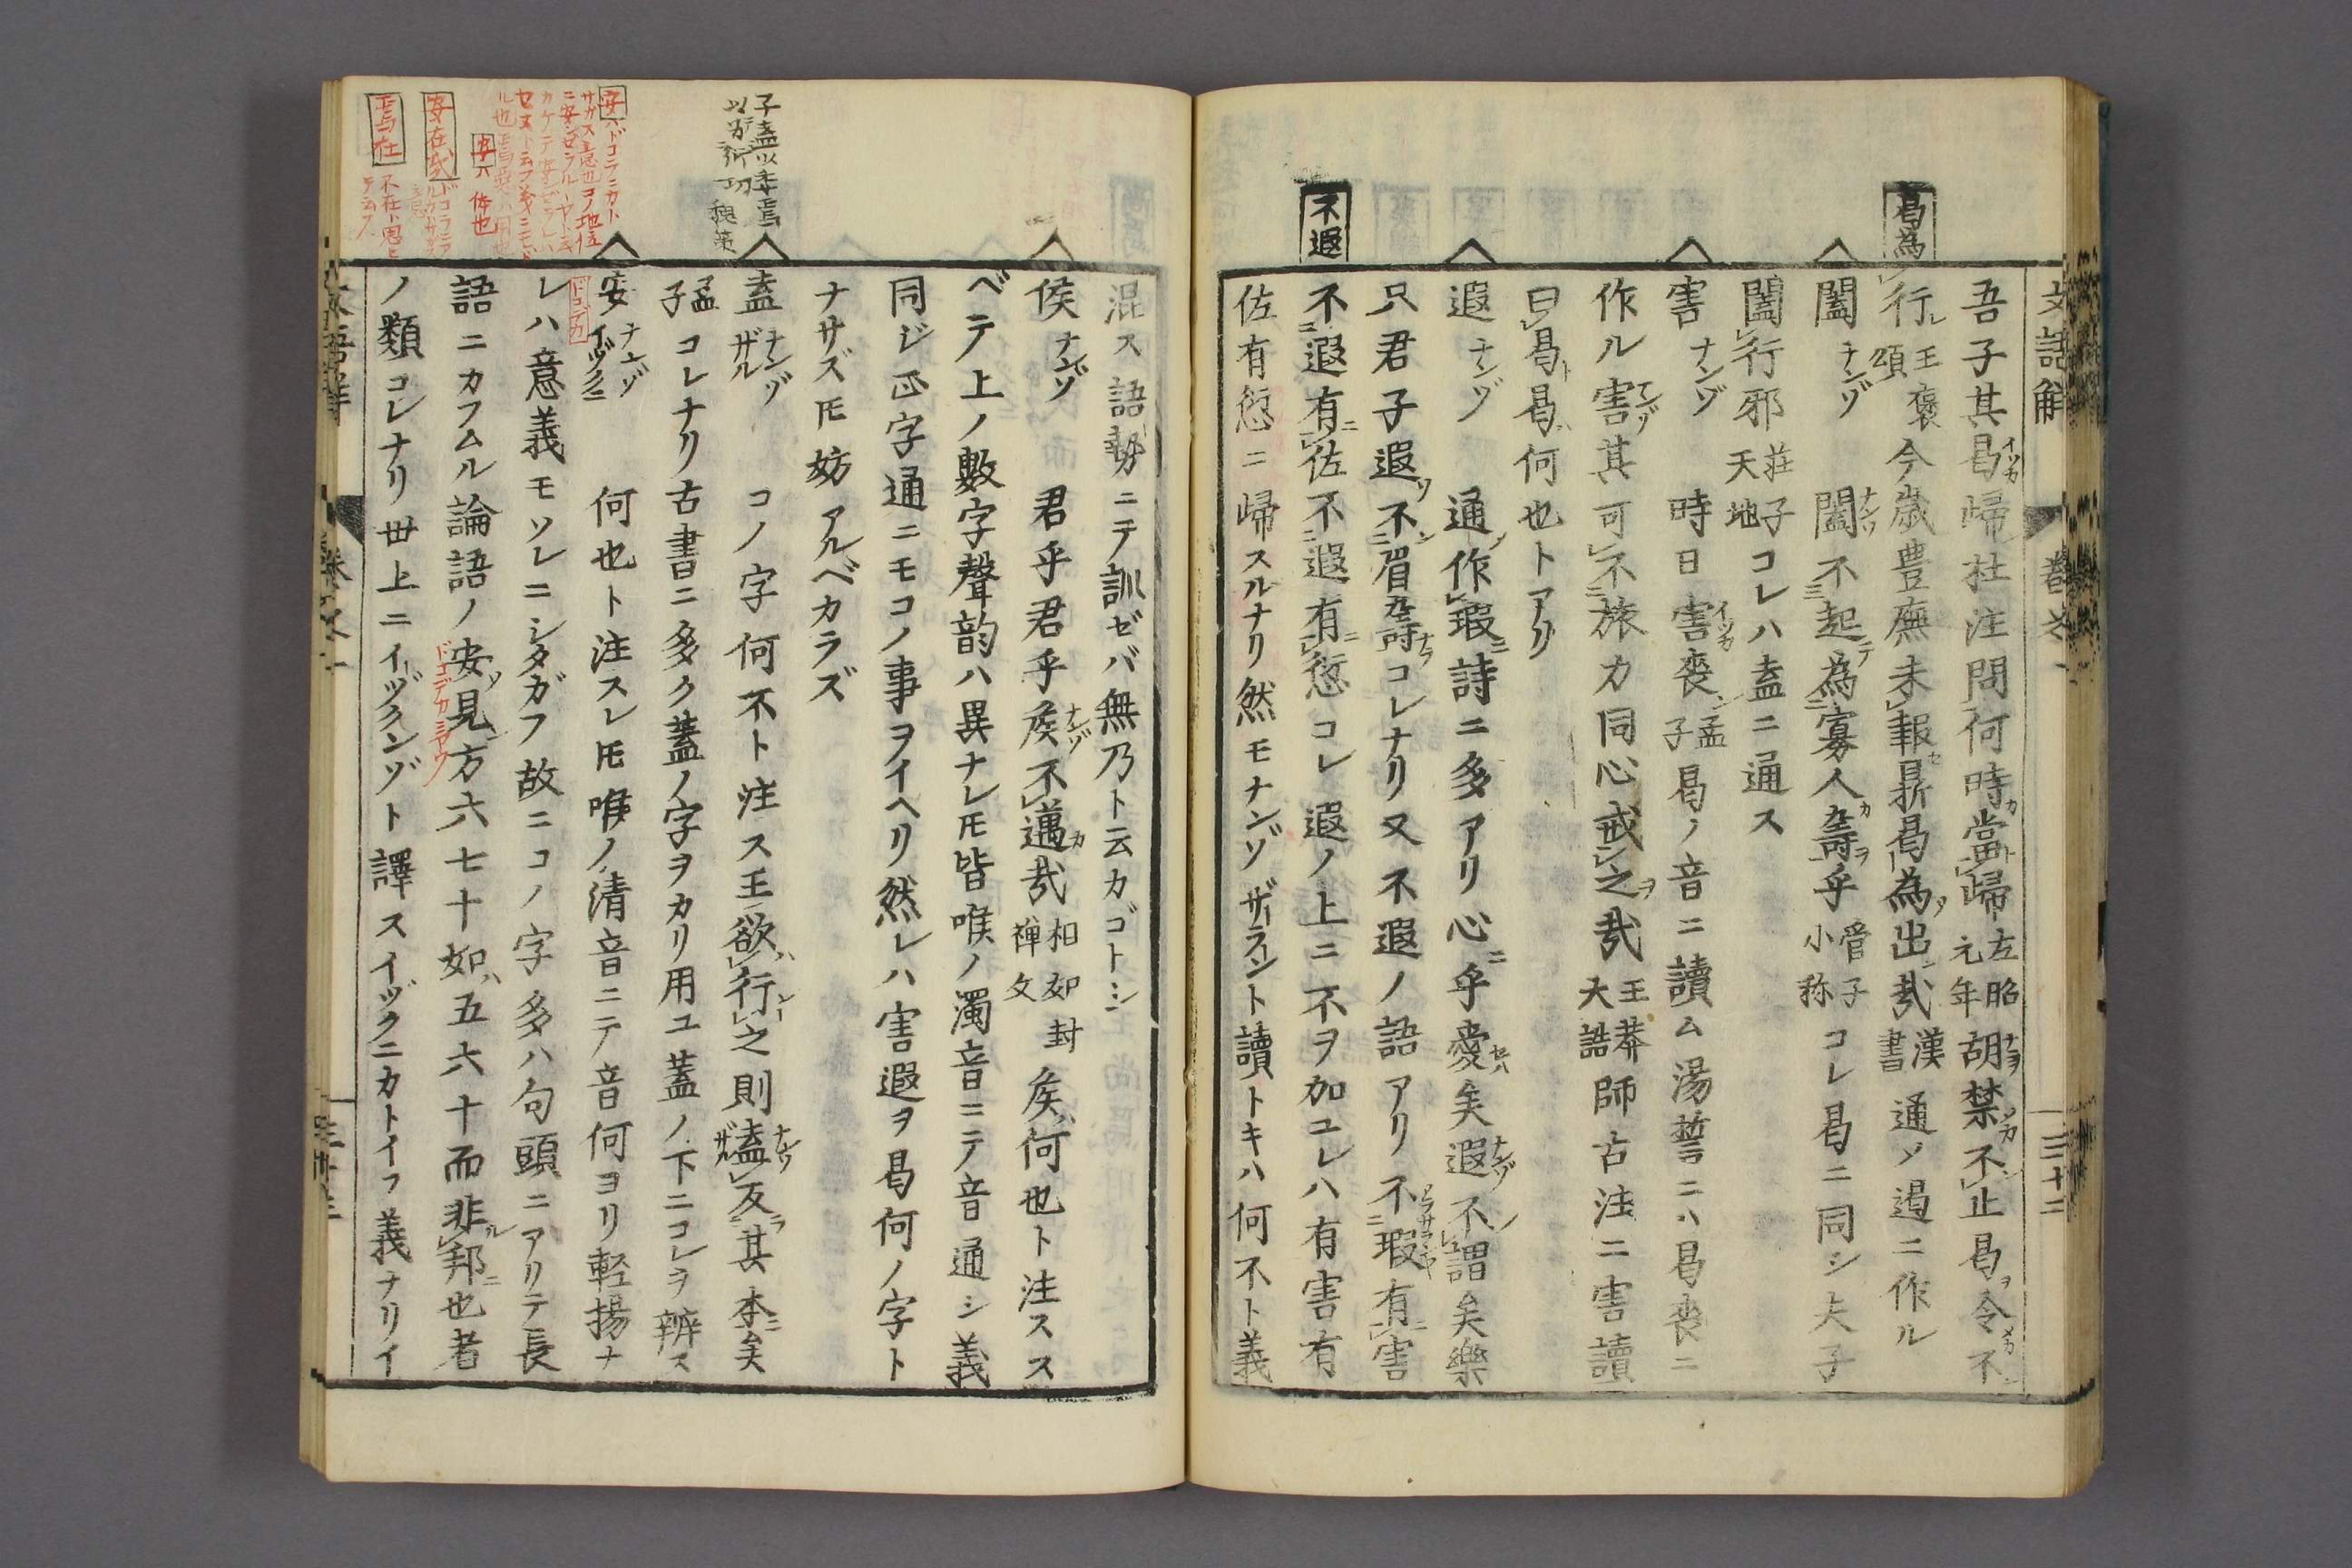 曷為
不遐
文語解
卷之一
三十二
吾子其曷歸杜注問何時當歸左昭元年胡禁不止曷令不
行王褒頌今歲豊廡未報鼏曷為出哉漢書通乄遏ニ作ル
闔ナンゾ 闔不起為寡人壽乎管子小称コレ曷ニ同シ夫子
闔行邪荘子天地コレハ盍ニ通ス
害ナンゾ 時日害喪孟子曷ノ音ニ讀ム湯誓ニハ曷喪ニ
作ル害其可不旅力同心戒之哉王莽大誥師古注ニ害讀
曰曷曷何也トアリ
遐ナンゾ 通作瑕詩ニ多アリ心乎愛矣遐不謂矣樂
只君子遐不眉壽コレナリ又不遐ノ語アリ不瑕有害
不遐有佐不遐有愆コレ遐ノ上ニ不ヲ加ユレハ有害有
佐有愆ニ歸スルナリ然モナンゾザラントト讀トキハ何不ト義
混ス語勢ニテ訓ゼバ無乃ト云カゴトシ
侯ナンゾ 君乎君乎矦不邁哉相如封禪文矦何也ト注スス
ベテ上ノ數字聲韵ハ異ナレ𪜈皆喉ノ濁音ニテ音通シ義
同ジ正字通ニモコノ事ヲイヘリ然レハ害遐ヲ曷何ノ字ト
ナサズ𪜈妨アルベカラズ
盍ナンゾザル コノ字何不ト注ス王欲行之則盍反其本矣
孟子コレナリ古書ニ多ク蓋ノ字ヲカリ用ユ蓋ノ下ニコレヲ辨ス
安ナンゾイヅクニ 何也ト注スレ𪜈喉ノ清音ニテ音何ヨリ軽揚ナ
レハ意義モソレニシタガフ故ニコノ字多ハ句頭ニアリテ長
語ニカフムル論語ノ安見方六七十如五六十而非邦也者
ノ類コレナリ丗上ニイヅクンゾト譯スイヅクニカトイフ義ナリイ
子盍以秦焉
以為所功 魏策
安ハドコラニカト
サガス意也コノ地位
安ハ 体也
安在哉
焉在 不在ト思ヒ
テ云フ
ドコデカ